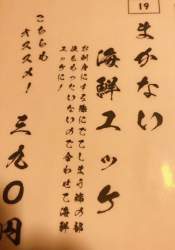 19
まかない
海鮮ユッケ
お刺身にする際にでてしまう端の部
位をもったいないので合わせて海鮮
ユッケに！
こちらも
オススメ！
三九〇円